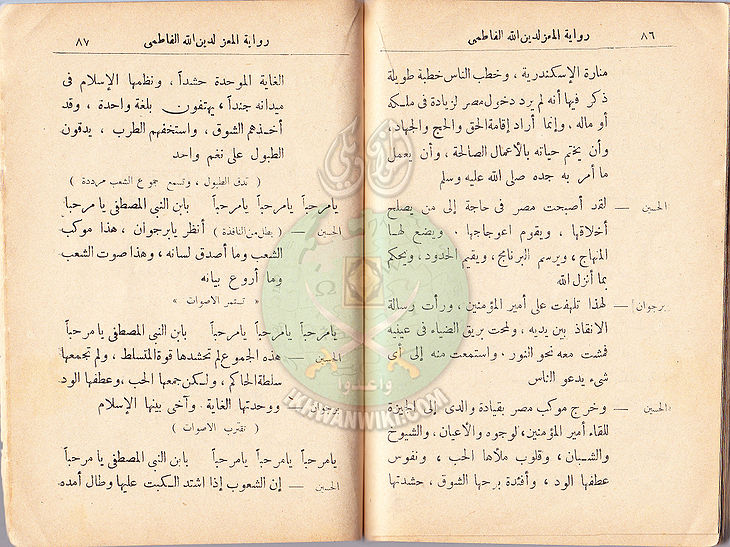 ٨٦ رواية المعز لدين الله الفاطمى
منارة الإسكندرية ، وخطب الناس خطبة طويلة
ذكر فيها أنه لم يرد دخول مصر لزيادة فى ملكه
أو ماله . وإنما أراد إقامة الحق والحج والجهاد،
وأن يختم حياته بالأعمال الصالحة ، وأن يعمل
ما أمر به جده صلى الله عليه وسلم
الحسين — لقد أصبحت مصر فى حاجة إلى من يصلح
أخلاقها ، ويقوم اعوجاجها . ويضع لهـا
المنهاج ، ويرسم البرنامج ، ويقيم الحدود ، ويحكم
بما أنزل الله
برجوان — لهذا تلهفت على أمير المؤمنين ، ورأت رسالة
الانقاذ بين يديه ، ولمحت بريق الضياء فى عينيه
فمشت معه نحو النور . واستمعت منه إلى أى
شىء يدعو الناس
الحسين — وخرج موكب مصر بقيادة والدى إلى الجيزة
للقاء أمير المؤمنين ، لوجوه والأعيان ، والشيوخ
والشبان ، وقلوب ملأها الحب ، ونفوس
عطفها الود ، وأفئدة برحها الشوق ، حشدتها
رواية المعز لدين الله الفاطمى ٨٧
الغاية الموحدة حشداً ، ونظمها الإسلام فى
ميدانه جنداً ، يهتفون بلغة واحدة ، وقد
أخذهم الشوق ، واستخفهم الطرب ، يدقون
الطبول على نغم واحد
( تدق الطبول ، وتسمع جموع الشعب مرددة )
يامرحباً يامرحباً يامرحباً يابن النبى المصطفى يا مرحبا
الحسين — ( يطل من النافذة ) أنظر يابرجوان ، هذا موكب
الشعب وما أصدق لسانه ، وهذا صوت الشعب
وما أروع بيانه
« تستمر الاصوات »
يامرحباً يامرحباً يامرحباً يابن النبى المصطفى يا مرحباً
الحسين — هذه الجموع لم تحشدها قوة المتسلط ، ولم تجمعها
سلطة الحاكم ، ولكن جمعها الحب ، وعطفها الود
برجوان — ووحدتها الغاية . وآخى بينها الإسلام
( تقترب الاصوات )
يامرحباً يامرحباً يامرحباً يابن النبى المصطفى يا مرحباً
الحسين — إن الشعوب إذا اشتد الكبت عليها وطال أمده
إخوان ويكى
وأعدوا
IKHWANWIKI.COM